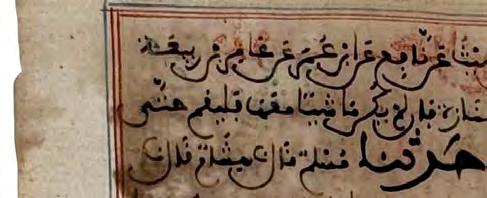 عن نافع عن ابن عمر عن عامر بن ربيعة
جنازة فإن لم يكن ماشيا معها فليقم حتى
حدثنا مسلم قال هشام قال